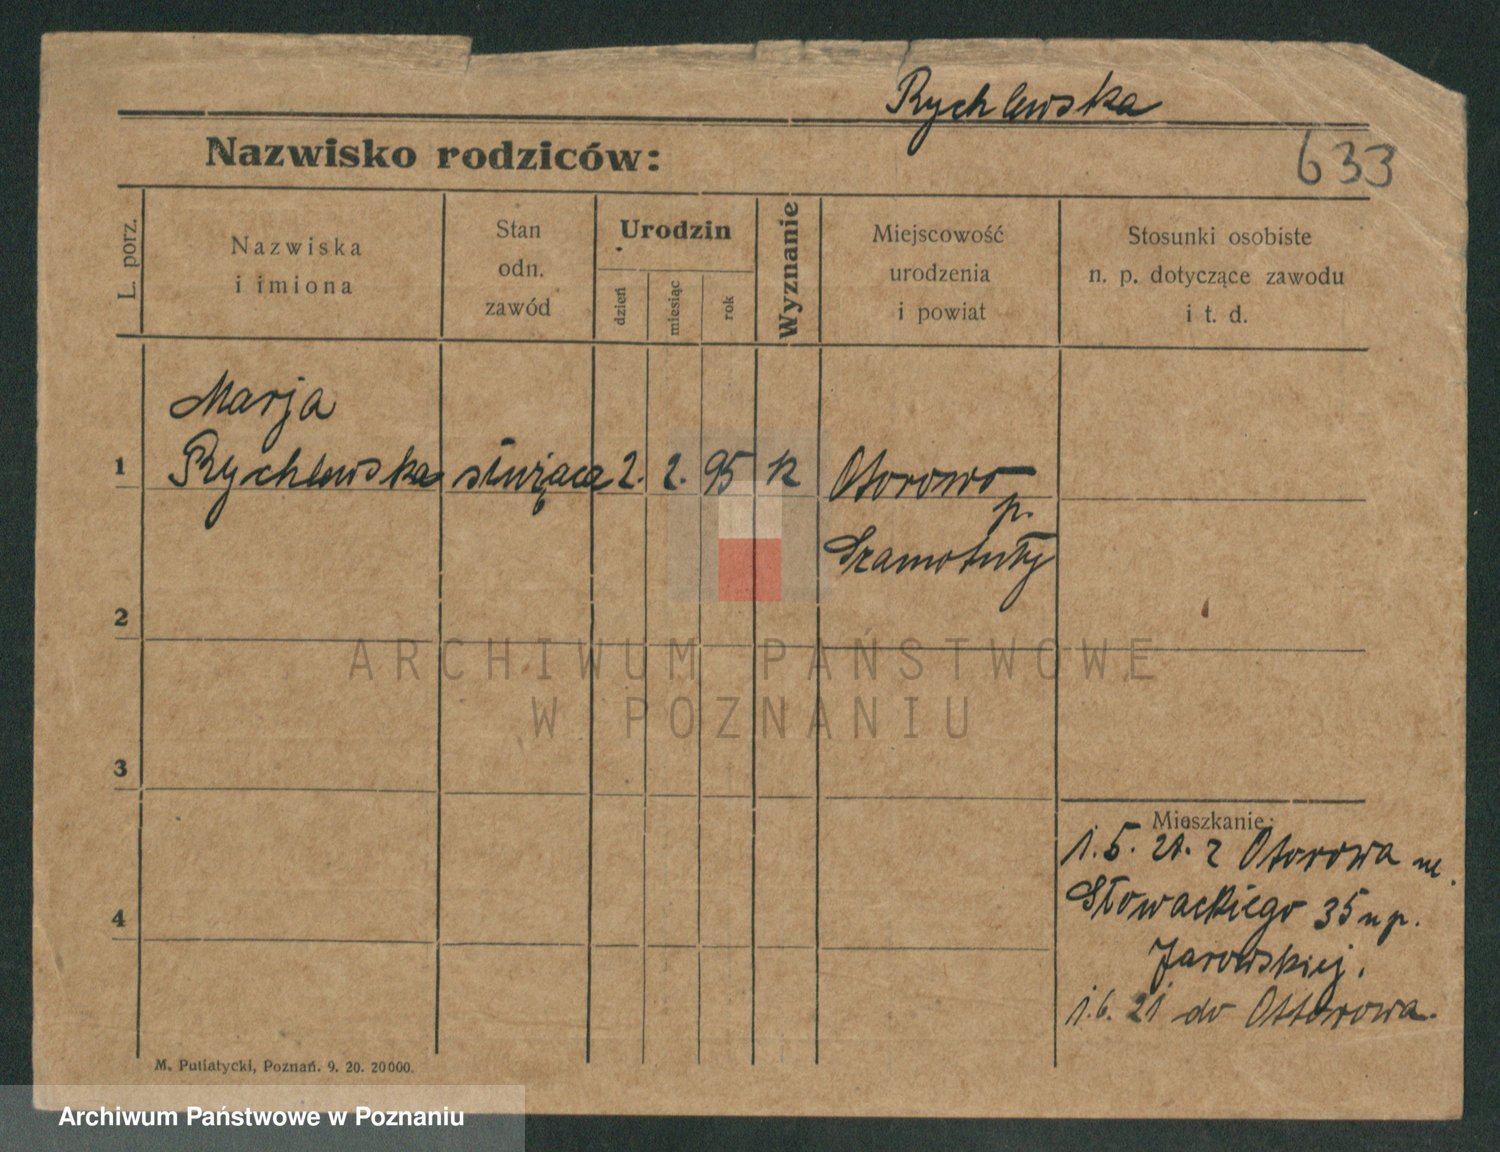 Rychlewska
Nazwisko rodziców:
633
L. porz.
Nazwiska
i imiona
Stan
odn.
zawód
Urodzin
dzień
miesiąc
rok
Wyznanie
Miejscowość
urodzenia
i powiat
Stosunki osobiste
n. p. dotyczące zawodu
i t. d.
Marja
1 Rychlewska służąca 2. 2. 95 k Otorowo
p.
Szamotuły
2
ARCHIWUM PAŃSTWOWE
W POZNANIU
3
Mieszkanie:
1. 5. 21. z Otorowa ul.
Słowackiego 35 u p.
Jarowskiej.
1. 6. 21 do Ottorowa.
4
M. Putiatycki, Poznań. 9. 20. 20000.
Archiwum Państwowe w Poznaniu